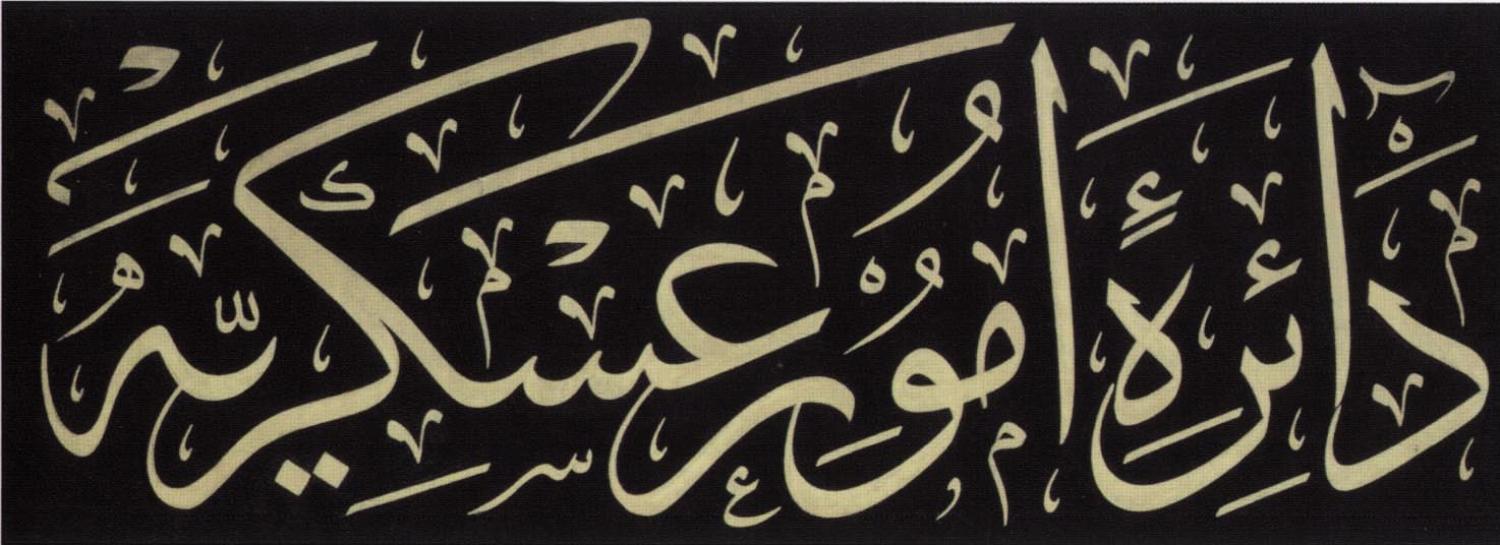 دَائِرَهِٔ اُمُورِ عَسْكَرِيَّهْ